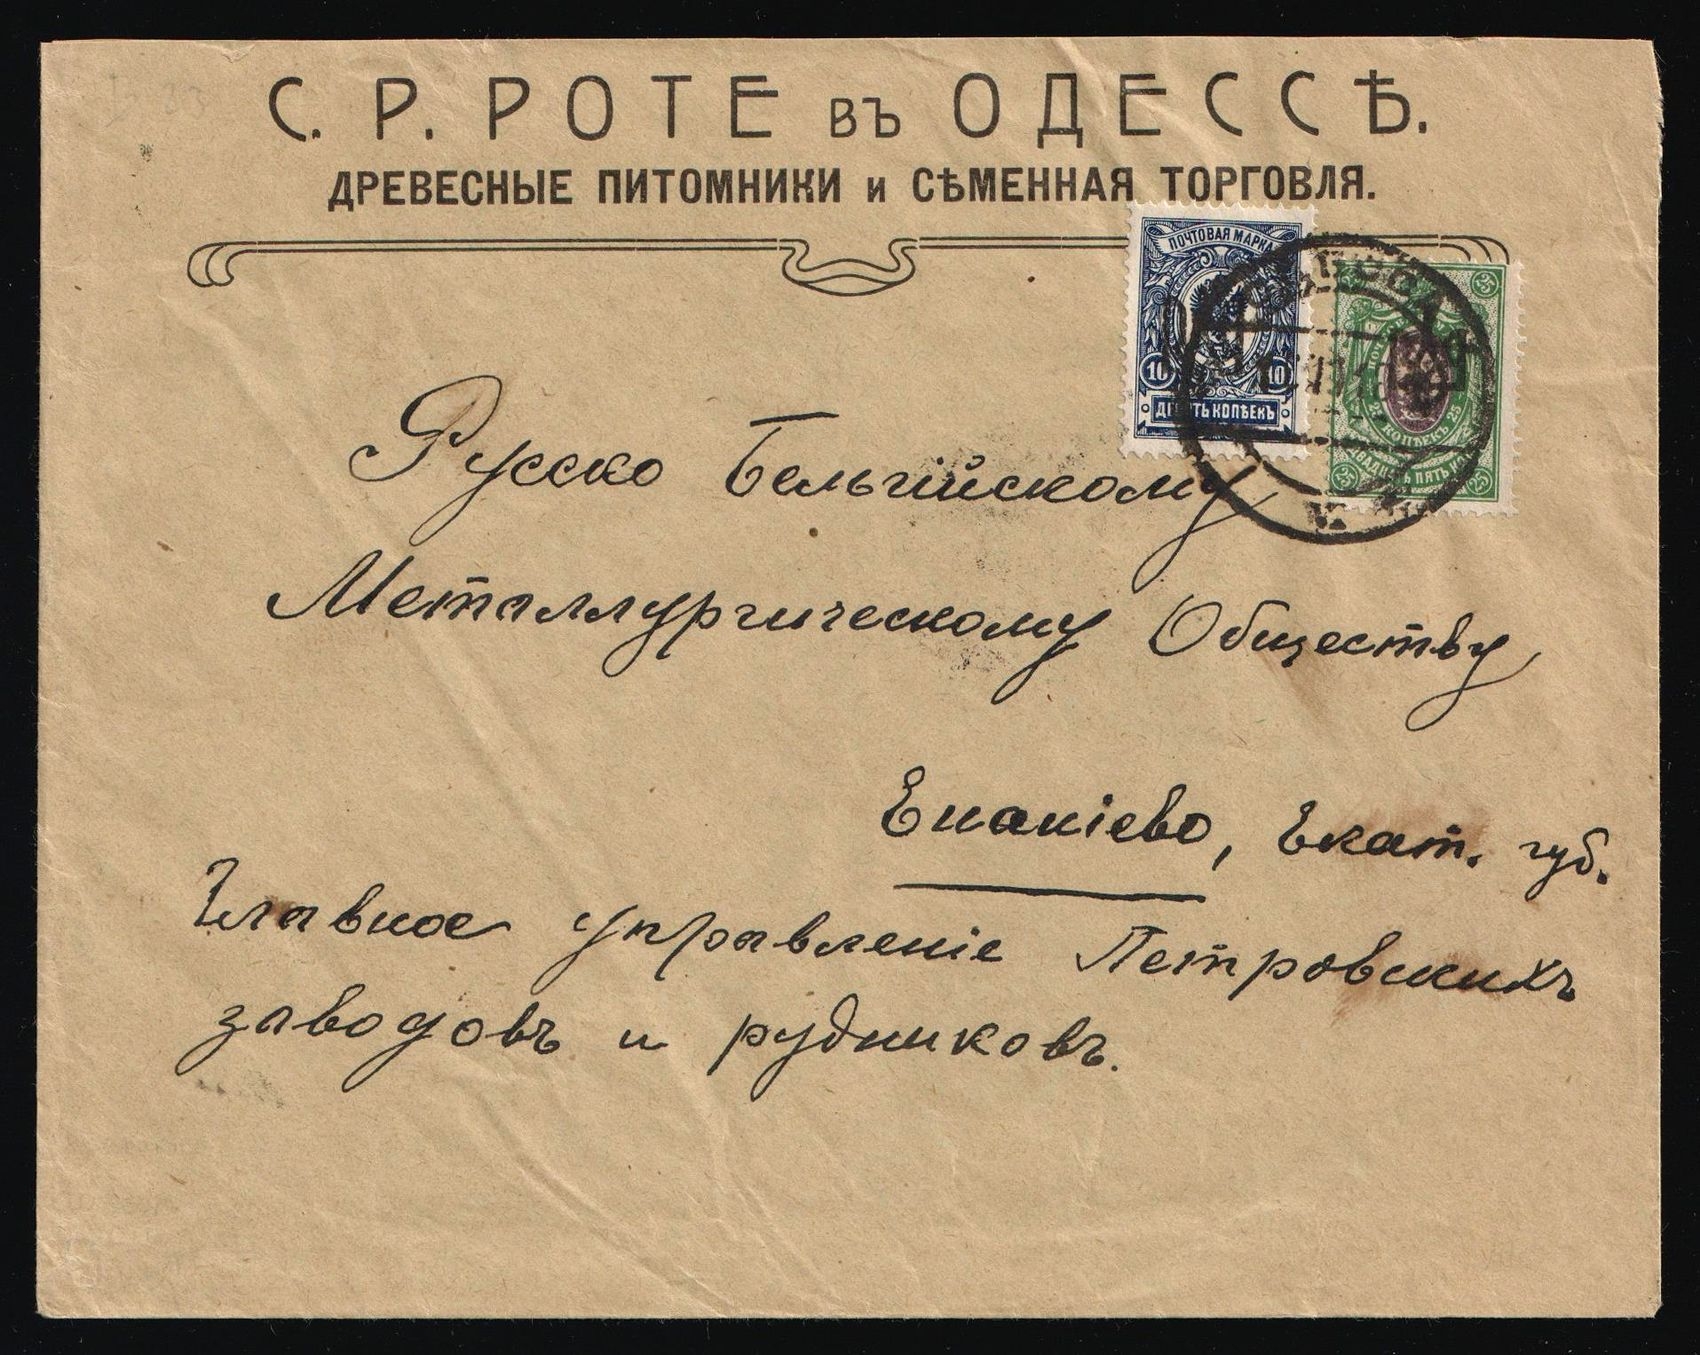 С. Р. РОТЕ въ ОДЕССѢ.
ДРЕВЕСНЫЕ ПИТОМНИКИ и СѢМЕННАЯ ТОРГОВЛЯ.
ПОЧТОВАЯ МАРКА
10 10
ДЕСЯТЬ КОПѢЕКЪ
25
25 25
КОПѢЕКЪ
25 25
Русско Бельгійскому
Металлургическому Обществу
Енакіево, Екат. губ.
Главное управленіе Петровскихъ
заводовъ и рудниковъ.